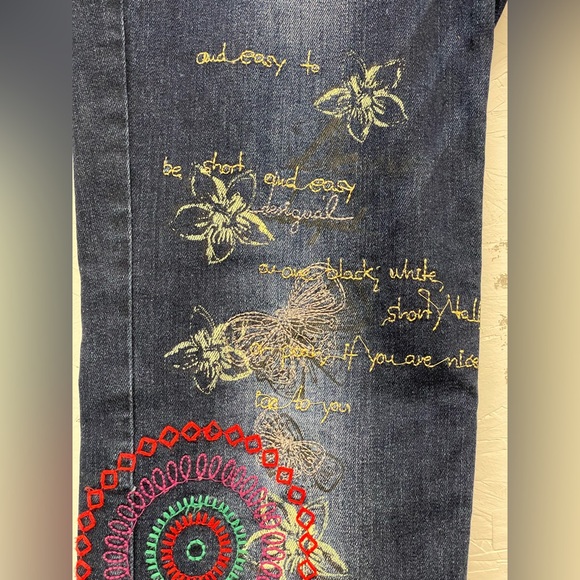 and easy to
be short and easy
desigual
are black, white,
short/tall
if you are nice
to you